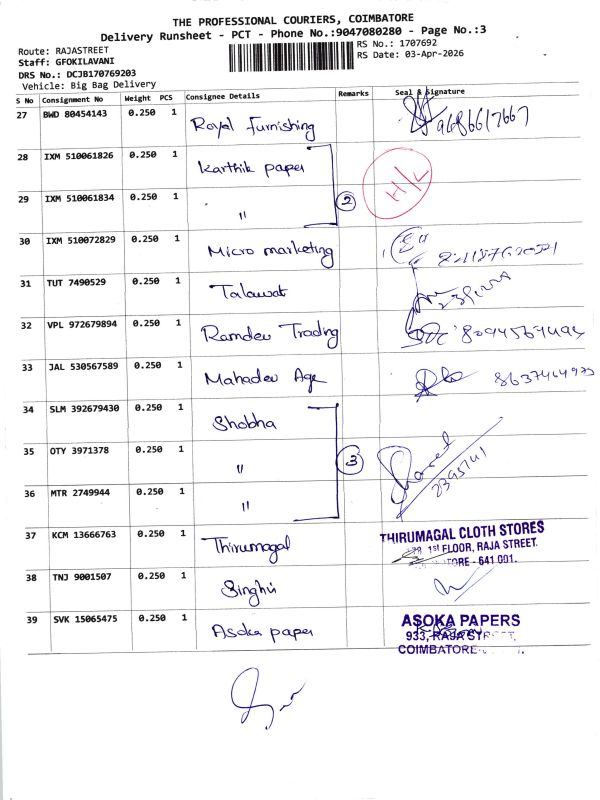 THE PROFESSIONAL COURIERS, COIMBATORE
Delivery Runsheet - PCT - Phone No.:9047080280 - Page No.:3
Route: RAJASTREET
RS No.: 1707692
Staff: GFOKILAVANI
RS Date: 03-Apr-2026
DRS No.: DCJB170769203
Vehicle: Big Bag Delivery
S No Consignment No Weight PCS Consignee Details Remarks Seal & Signature
27 BWD 80454143 0.250 1 Royal furnishing 9686617667
28 IXM 510061826 0.250 1 Karthik paper
29 IXM 510061834 0.250 1 " 2 H/L
30 IXM 510072829 0.250 1 Micro marketing
31 TUT 7490529 0.250 1 Talawat
32 VPL 972679894 0.250 1 Ramdev Trading 8094564494
33 JAL 530567589 0.250 1 Mahadev Age 8637464973
34 SLM 392679430 0.250 1 Shobha
35 OTY 3971378 0.250 1 " 3 2395141
36 MTR 2749944 0.250 1 "
37 KCM 13666763 0.250 1 Thirumagal THIRUMAGAL CLOTH STORES
1st FLOOR, RAJA STREET.
- 641 001.
38 TNJ 9001507 0.250 1 Singhvi
39 SVK 15065475 0.250 1 Asoka paper ASOKA PAPERS
933, RAJA STREET,
COIMBATORE